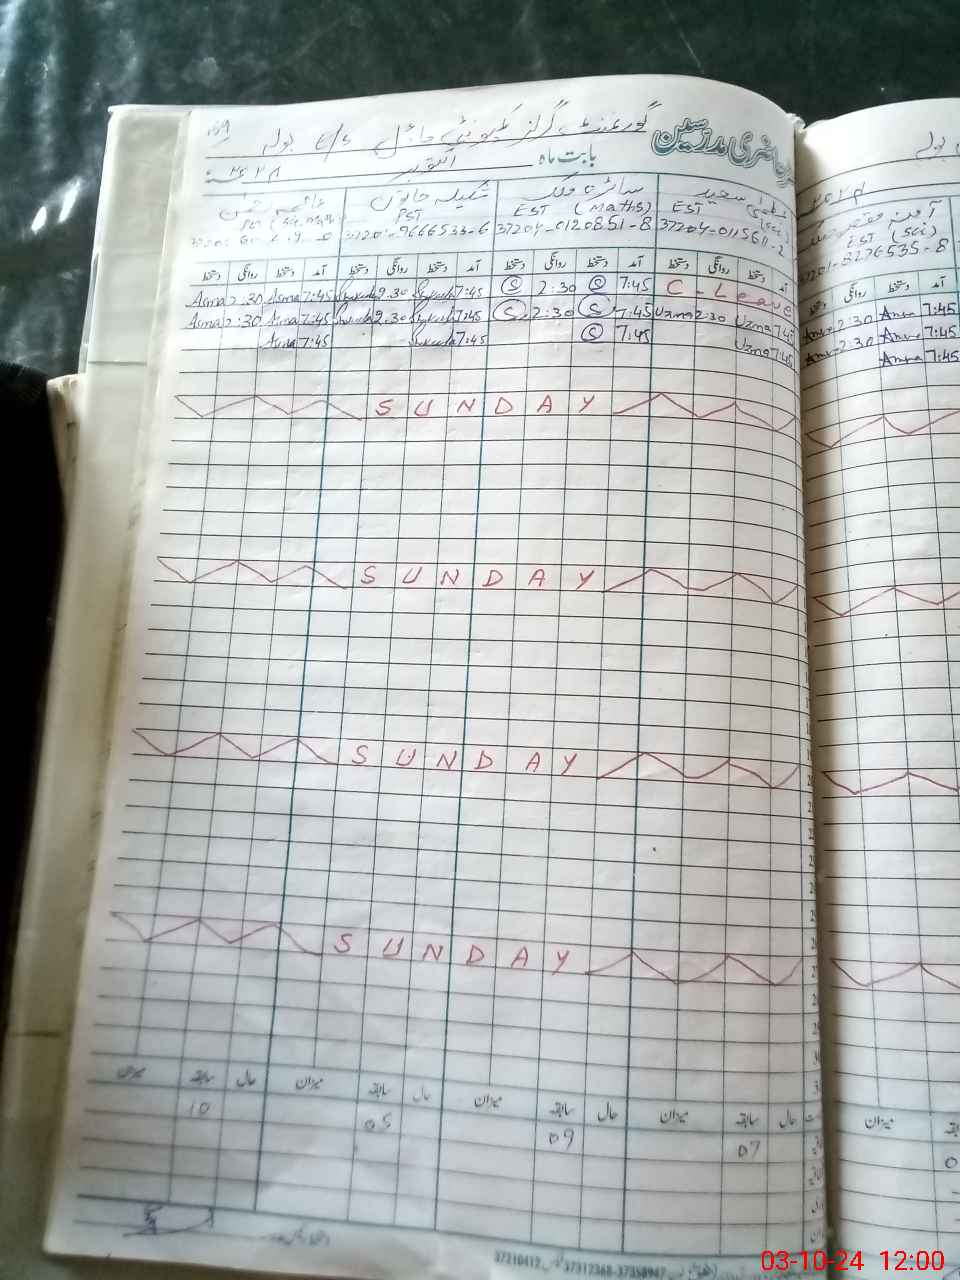 گورنمنٹ گرلز کمیونٹی ماڈل E/S بولہ
حاضری مدرسین
بابت ماہ اکتوبر ۲۰۲۴ء
شکیلہ خاتون سائرہ ملک عظمیٰ سعید
PST EST (Maths) EST (Sci)
37201-9666533-6 37204-0120851-8 37204-0115611-2
EST (Sci)
37201-3276535-8
دستخط روانگی دستخط آمد دستخط روانگی دستخط آمد دستخط روانگی دستخط آمد دستخط روانگی دستخط آمد دستخط روانگی دستخط آمد
Asma 2:30 Asma 7:45 2.30 7:45 S 2:30 S 7:45 C - Leave 2:30 7:45
Asma 2:30 Asma 7:45 2.30 7:45 S 2:30 S 7:45 Uzma 2:30 Uzma 7:45 2:30 7:45
Asma 7:45 7:45 S 7:45 Uzma 7:45 7:45
SUNDAY
SUNDAY
SUNDAY
SUNDAY
میزان سابقہ حال میزان سابقہ حال میزان سابقہ حال میزان سابقہ حال میزان
10 05 09 07
37310412 37312368-37358947
03-10-24 12:00